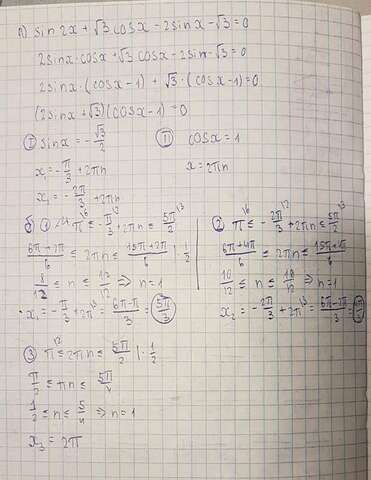 а) sin2x + √3 cosx - 2sinx - √3 = 0
2sinx·cosx + √3 cosx - 2sinx - √3 = 0
2sinx·(cosx - 1) + √3·(cosx - 1) = 0
(2sinx + √3)(cosx - 1) = 0
I sinx = -√3/2 II cosx = 1
x₁ = -π/3 + 2πn x = 2πn
x₁ = -2π/3 + 2πn
б) ① π ≤ -π/3 + 2πn ≤ 5π/2
≤ 2πn ≤ (15π+2π)/6 | · 1/2
≤ n ≤ ⇒ n = 1
x₁ = -π/3 + 2π = (6π-π)/3 = 5π/3
② π ≤ -2π/3 + 2πn ≤ 5π/2
(6π+4π)/6 ≤ 2πn ≤
10/12 ≤ n ≤ ⇒ n = 1
x₂ = -2π/3 + 2π = (6π-2π)/3 =
③ π ≤ 2πn ≤ 5π/2 | · 1/2
π/2 ≤ πn ≤ 5π/4
1/2 ≤ n ≤ 5/4 ⇒ n = 1
x₃ = 2π